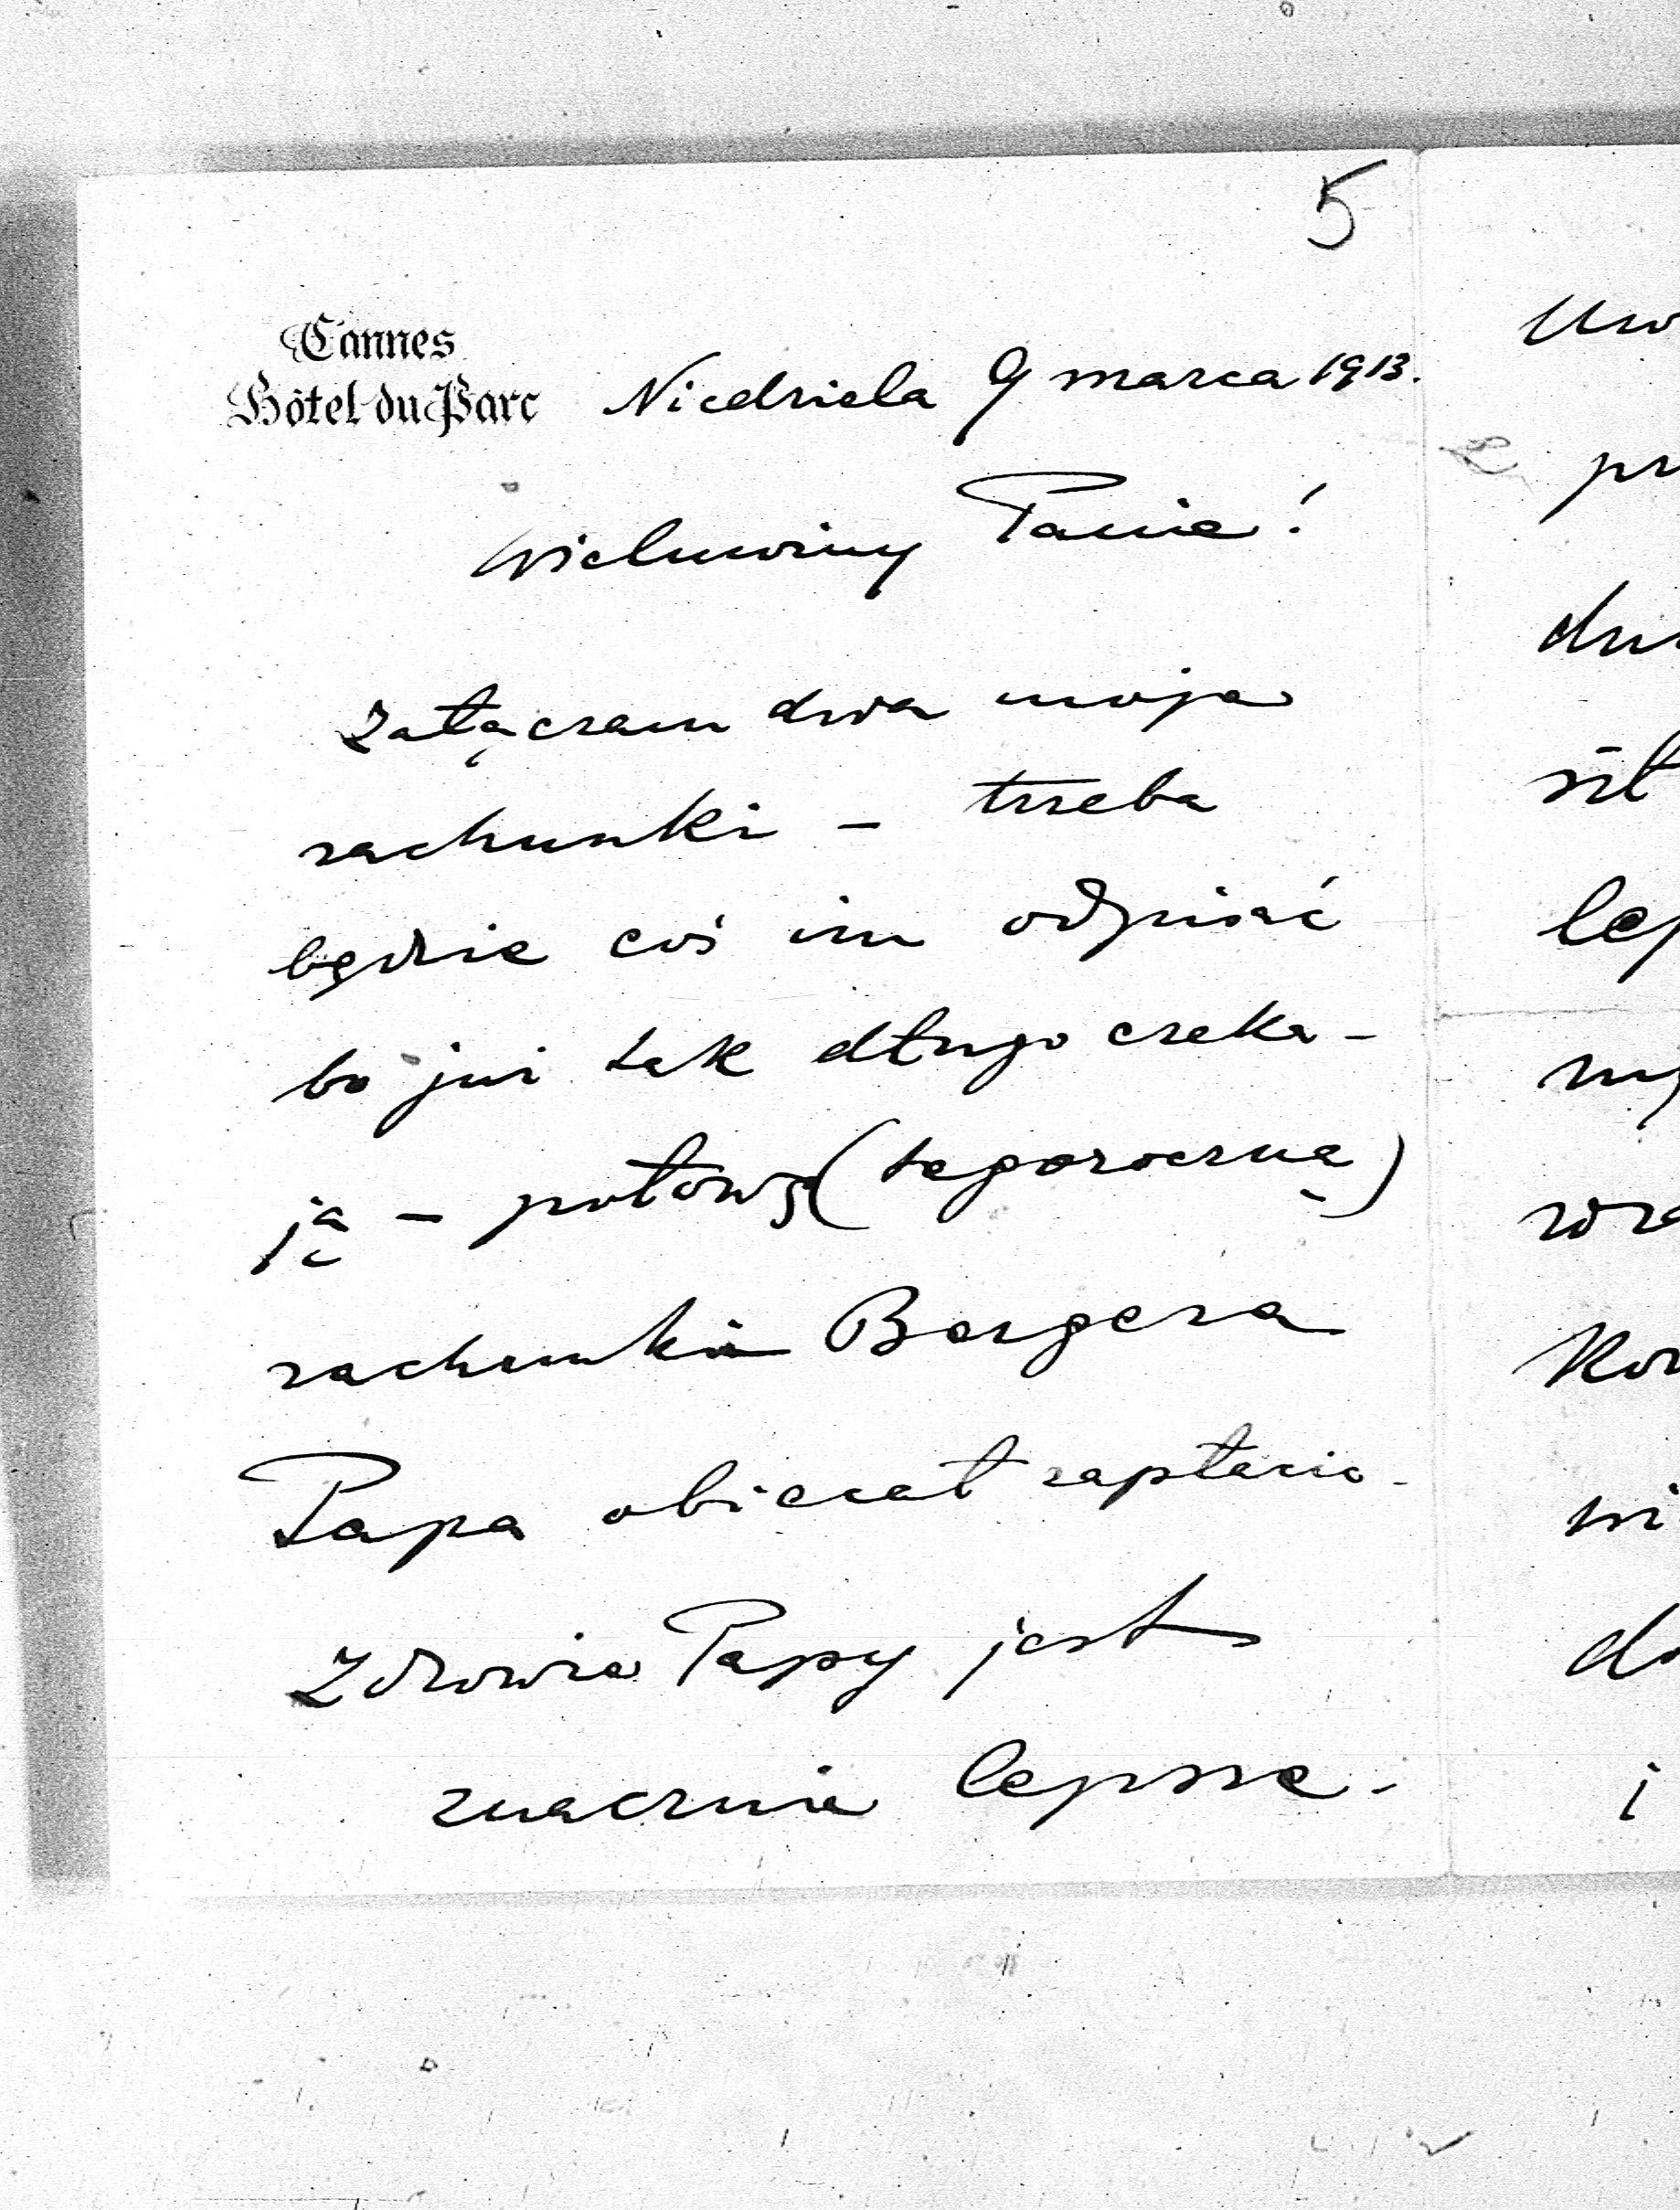 5
Cannes
Hôtel du Parc
Niedziela 9 marca 1913.
Wielmożny Panie!
Załączam dwa moje
rachunki – trzeba
będzie coś im odpisać
bo już tak długo czeka-
ją – połowę (tegoroczną)
rachunku Bergera
Papa obiecał zapłacić.
Zdrowie Papy jest
znacznie lepsze.